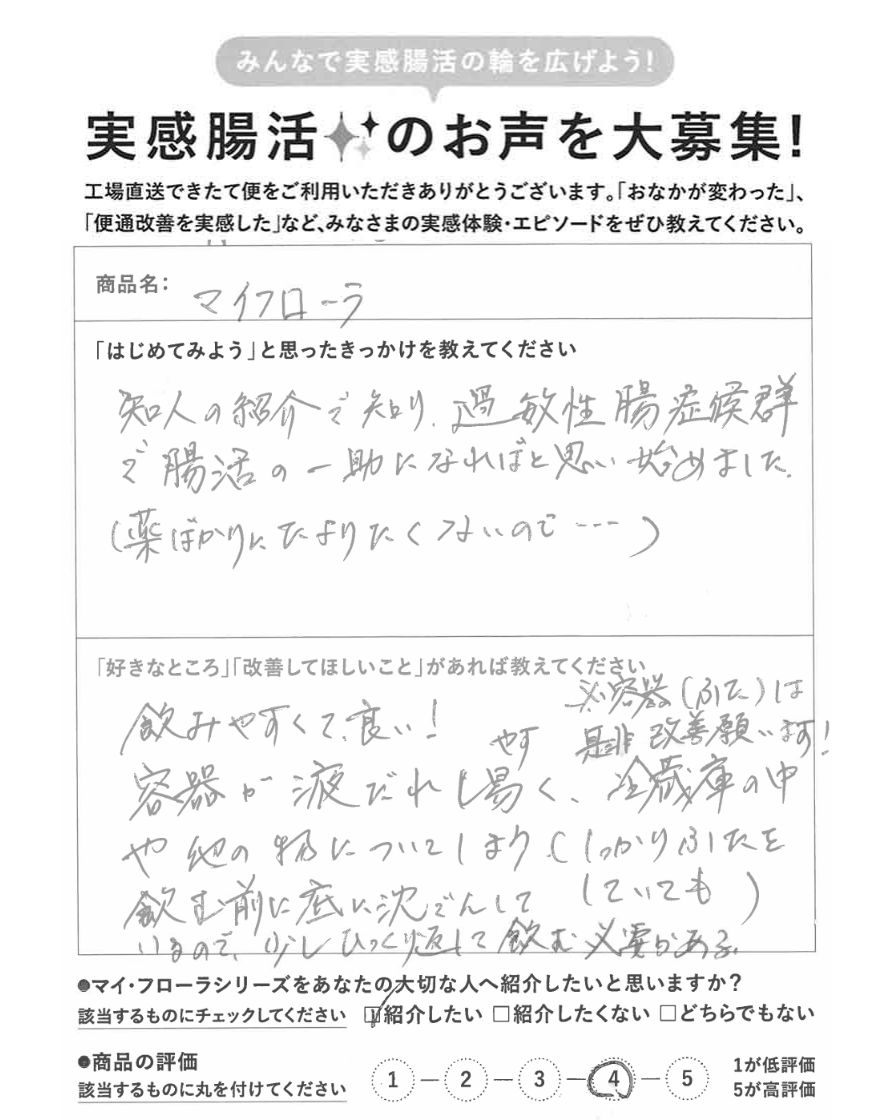 みんなで実感腸活の輪を広げよう!
実感腸活のお声を大募集!
工場直送できたて便をご利用いただきありがとうございます。「おなかが変わった」、
「便通改善を実感した」など、みなさまの実感体験・エピソードをぜひ教えてください。
商品名: マイフローラ
「はじめてみよう」と思ったきっかけを教えてください
知人の紹介で知り、過敏性腸症候群
で腸活の一助になればと思い始めました。
(薬ばかりにたよりたくないので---)
「好きなところ」「改善してほしいこと」があれば教えてください
※容器(ふた)は
是非改善願います!
飲みやすくて、良い!
やす
容器が液だれし易く、冷蔵庫の中
や他の物についてしまう(しっかりふたを
していても)
飲む前に底に沈でんして
いるので、少しひっくり返して飲む必要がある。
●マイ・フローラシリーズをあなたの大切な人へ紹介したいと思いますか?
該当するものにチェックしてください ☑紹介したい □紹介したくない □どちらでもない
●商品の評価
該当するものに丸を付けてください
1 — 2 — 3 — 4 — 5
1が低評価
5が高評価